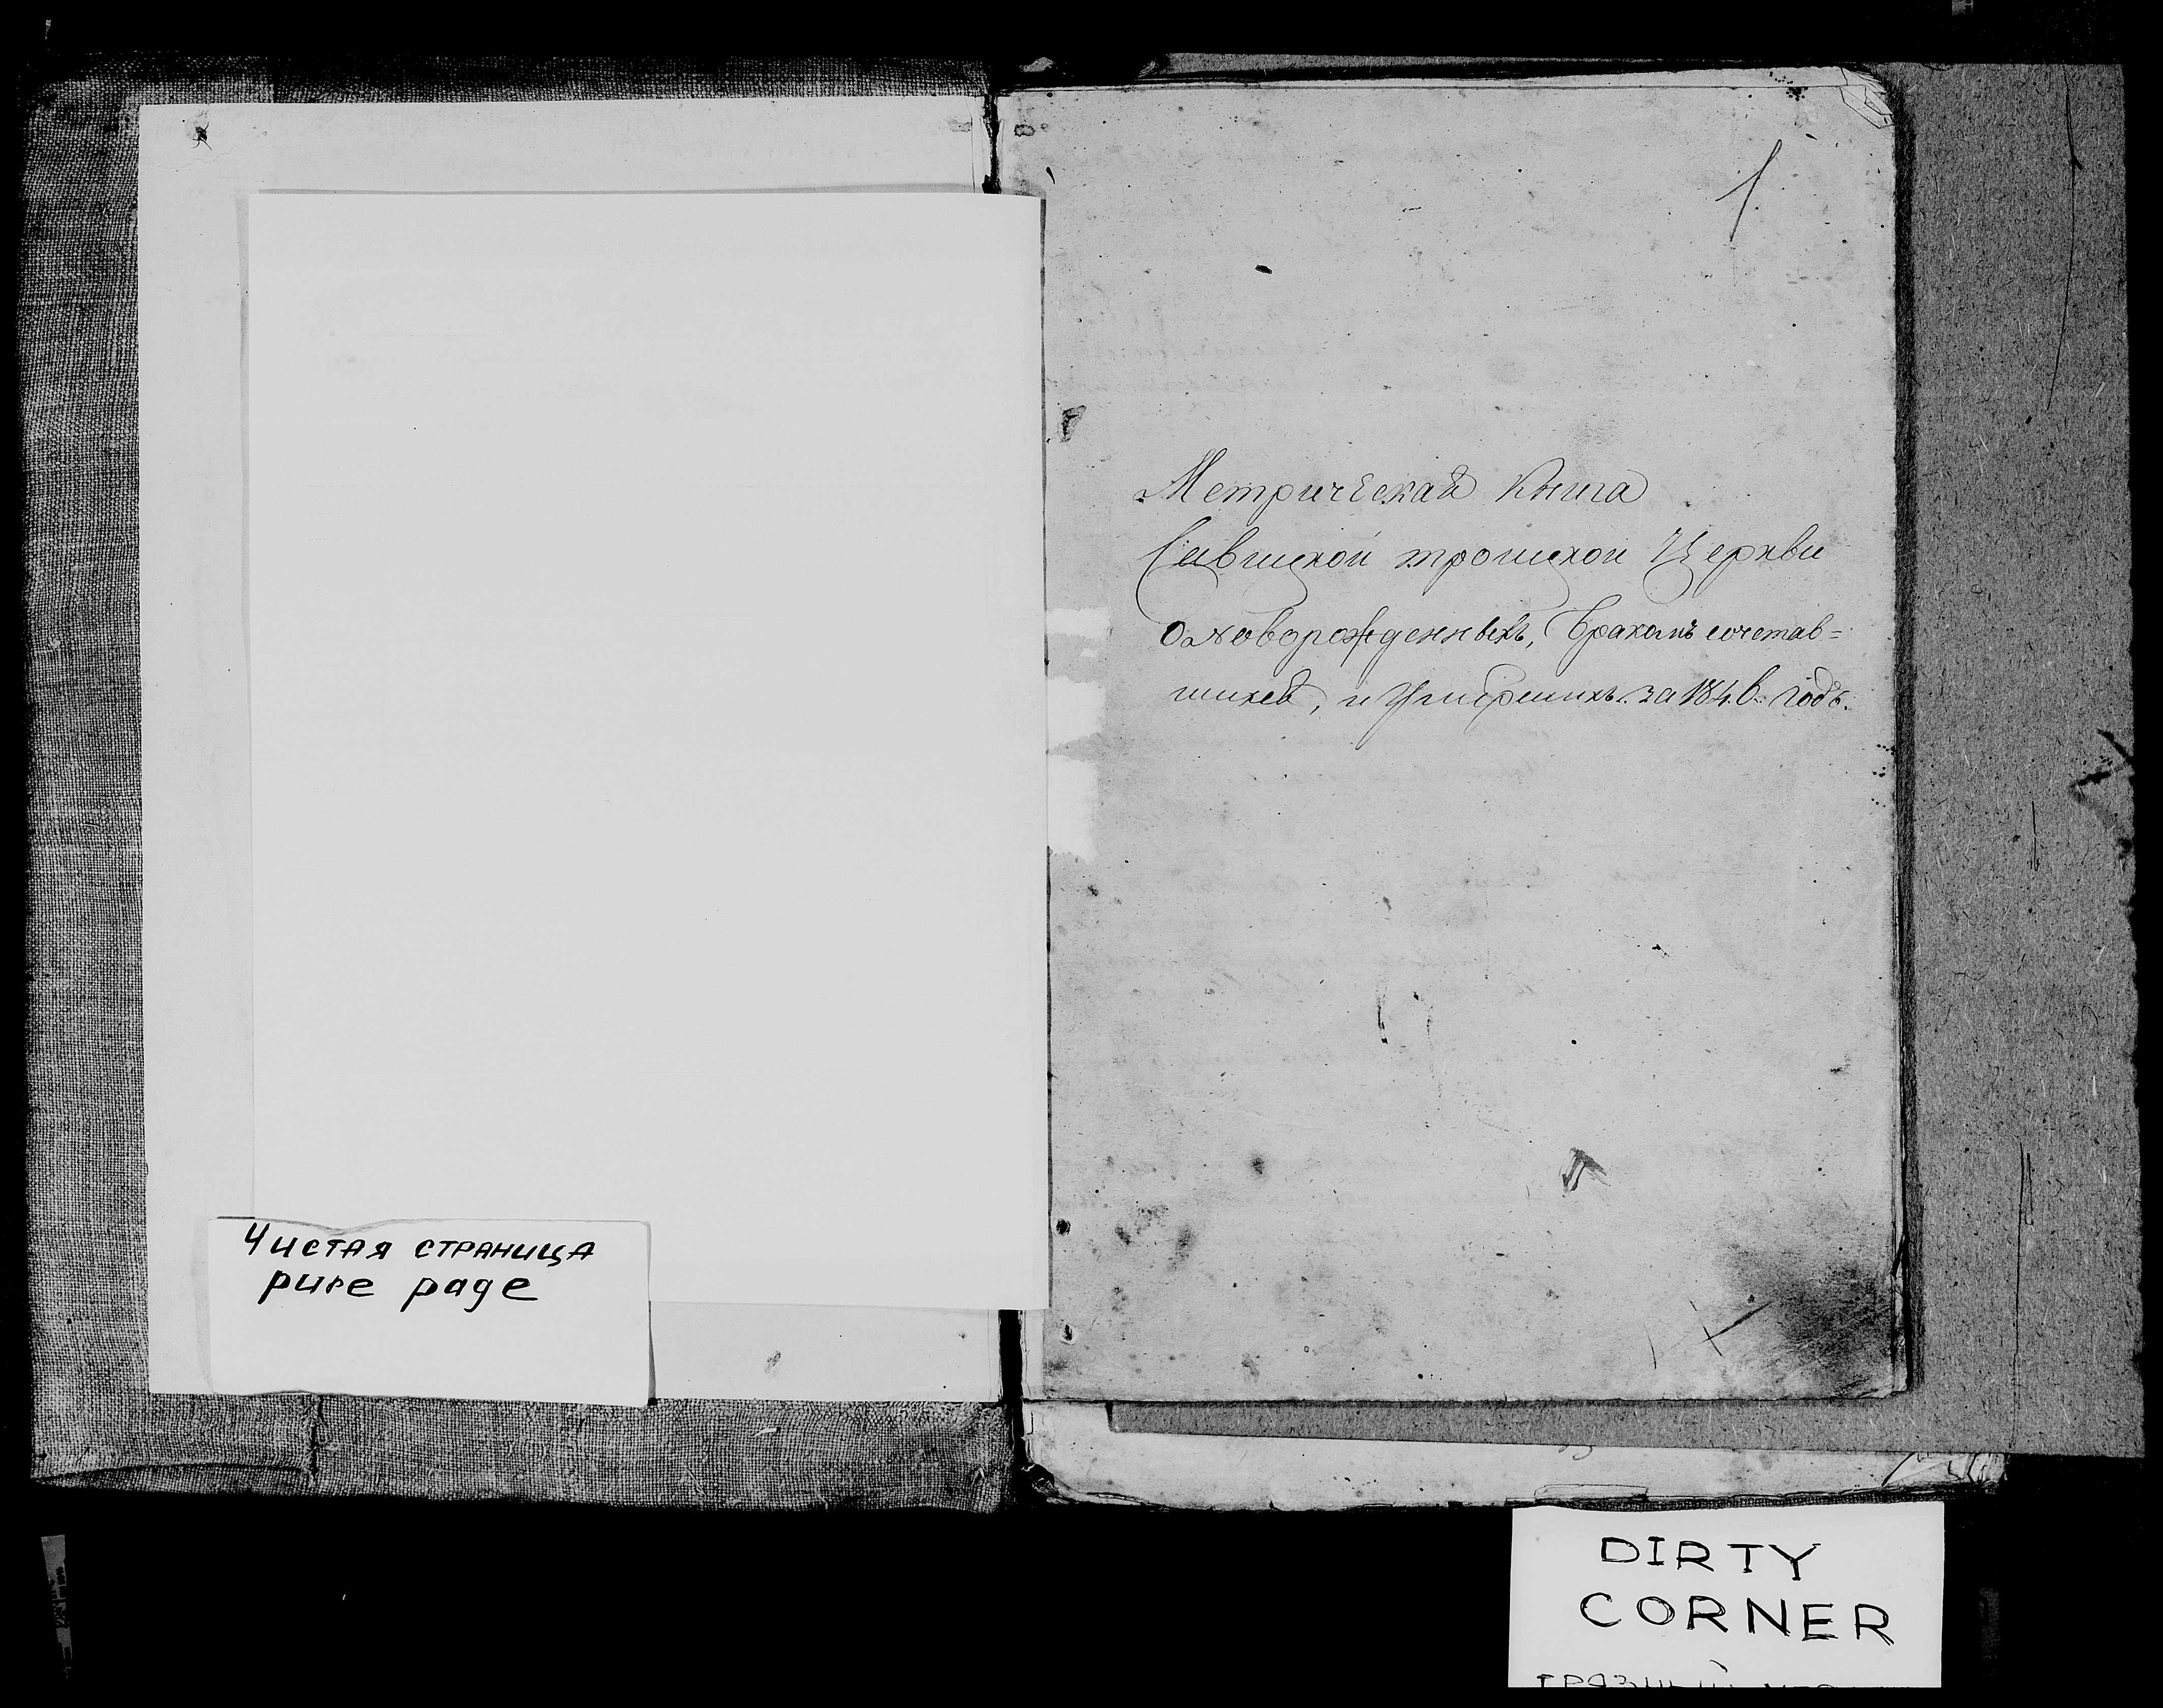 1
Метрическая Книга
Савицкой троицкой Церкви
о новорожденныхъ, бракомъ сочетав=
шихся, и Умершихъ за 1846. годъ.
Чистая страница
pure page
DIRTY
CORNER
грязный